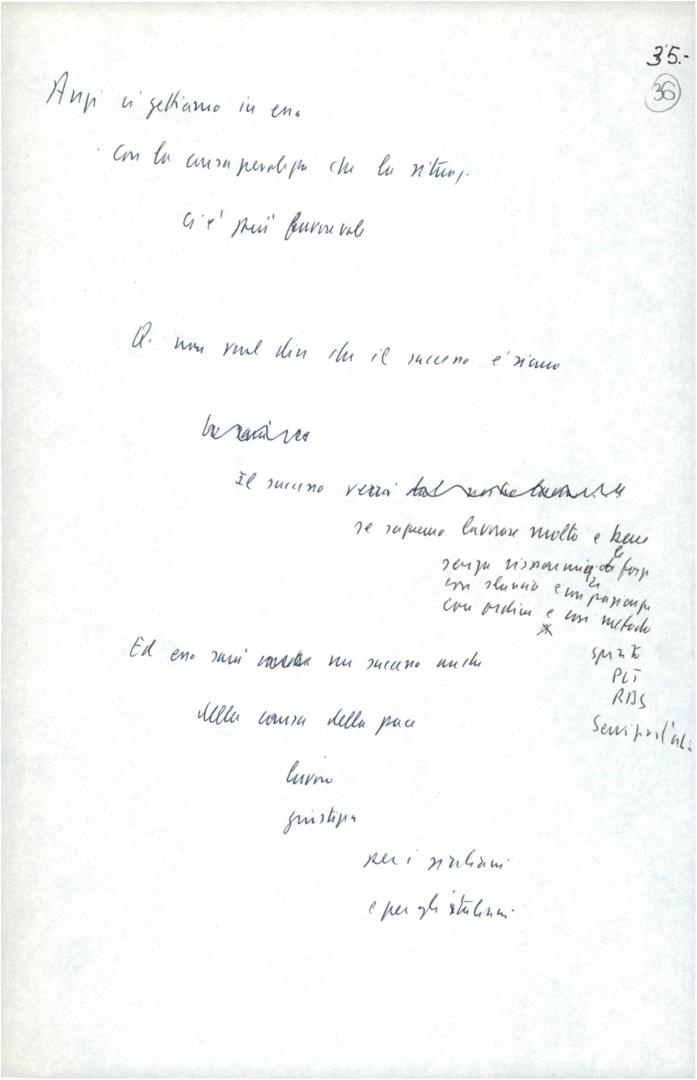 35.-
36
Anzi ci gettiamo in essa
con la consapevolezza che la situaz.
ci è più favorevole
Q. non vuol dire che il successo è siamo
Il successo verrà
se sapremo lavorare molto e bene
senza risparmio le forze
con slancio e con passione
con ordine e con metodo
spirito
PLT
RDS
Ed esso sarà un successo anche
della causa della pace
lavoro
giustizia
per i siciliani
e per gli italiani